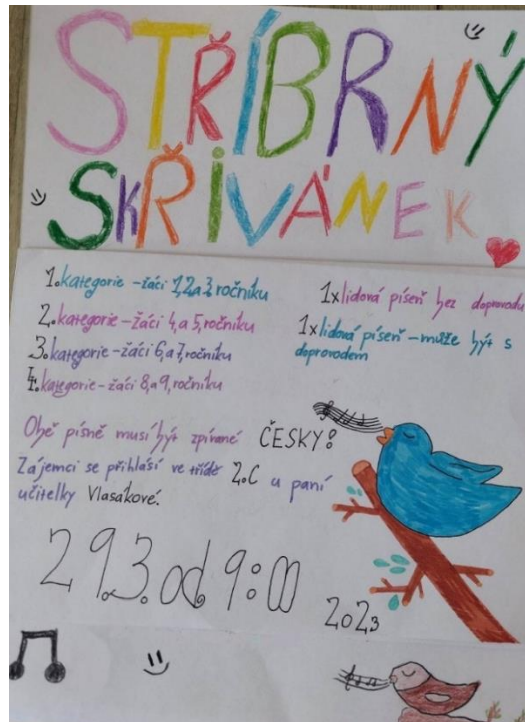 STŘÍBRNÝ
SKŘIVÁNEK
1. kategorie - žáci 1, 2 a 3. ročníku
2. kategorie - žáci 4, a 5, ročníku
3. kategorie - žáci 6, a 7, ročníku
4. kategorie - žáci 8, a 9, ročníku
1x lidová píseň bez doprovodu
1x lidová píseň - může být s
doprovodem
Obě písně musí být zpívané ČESKY!
Zájemci se přihlásí ve třídě 2.C u paní
učitelky Vlasákové.
29.3. od 9:00
2023